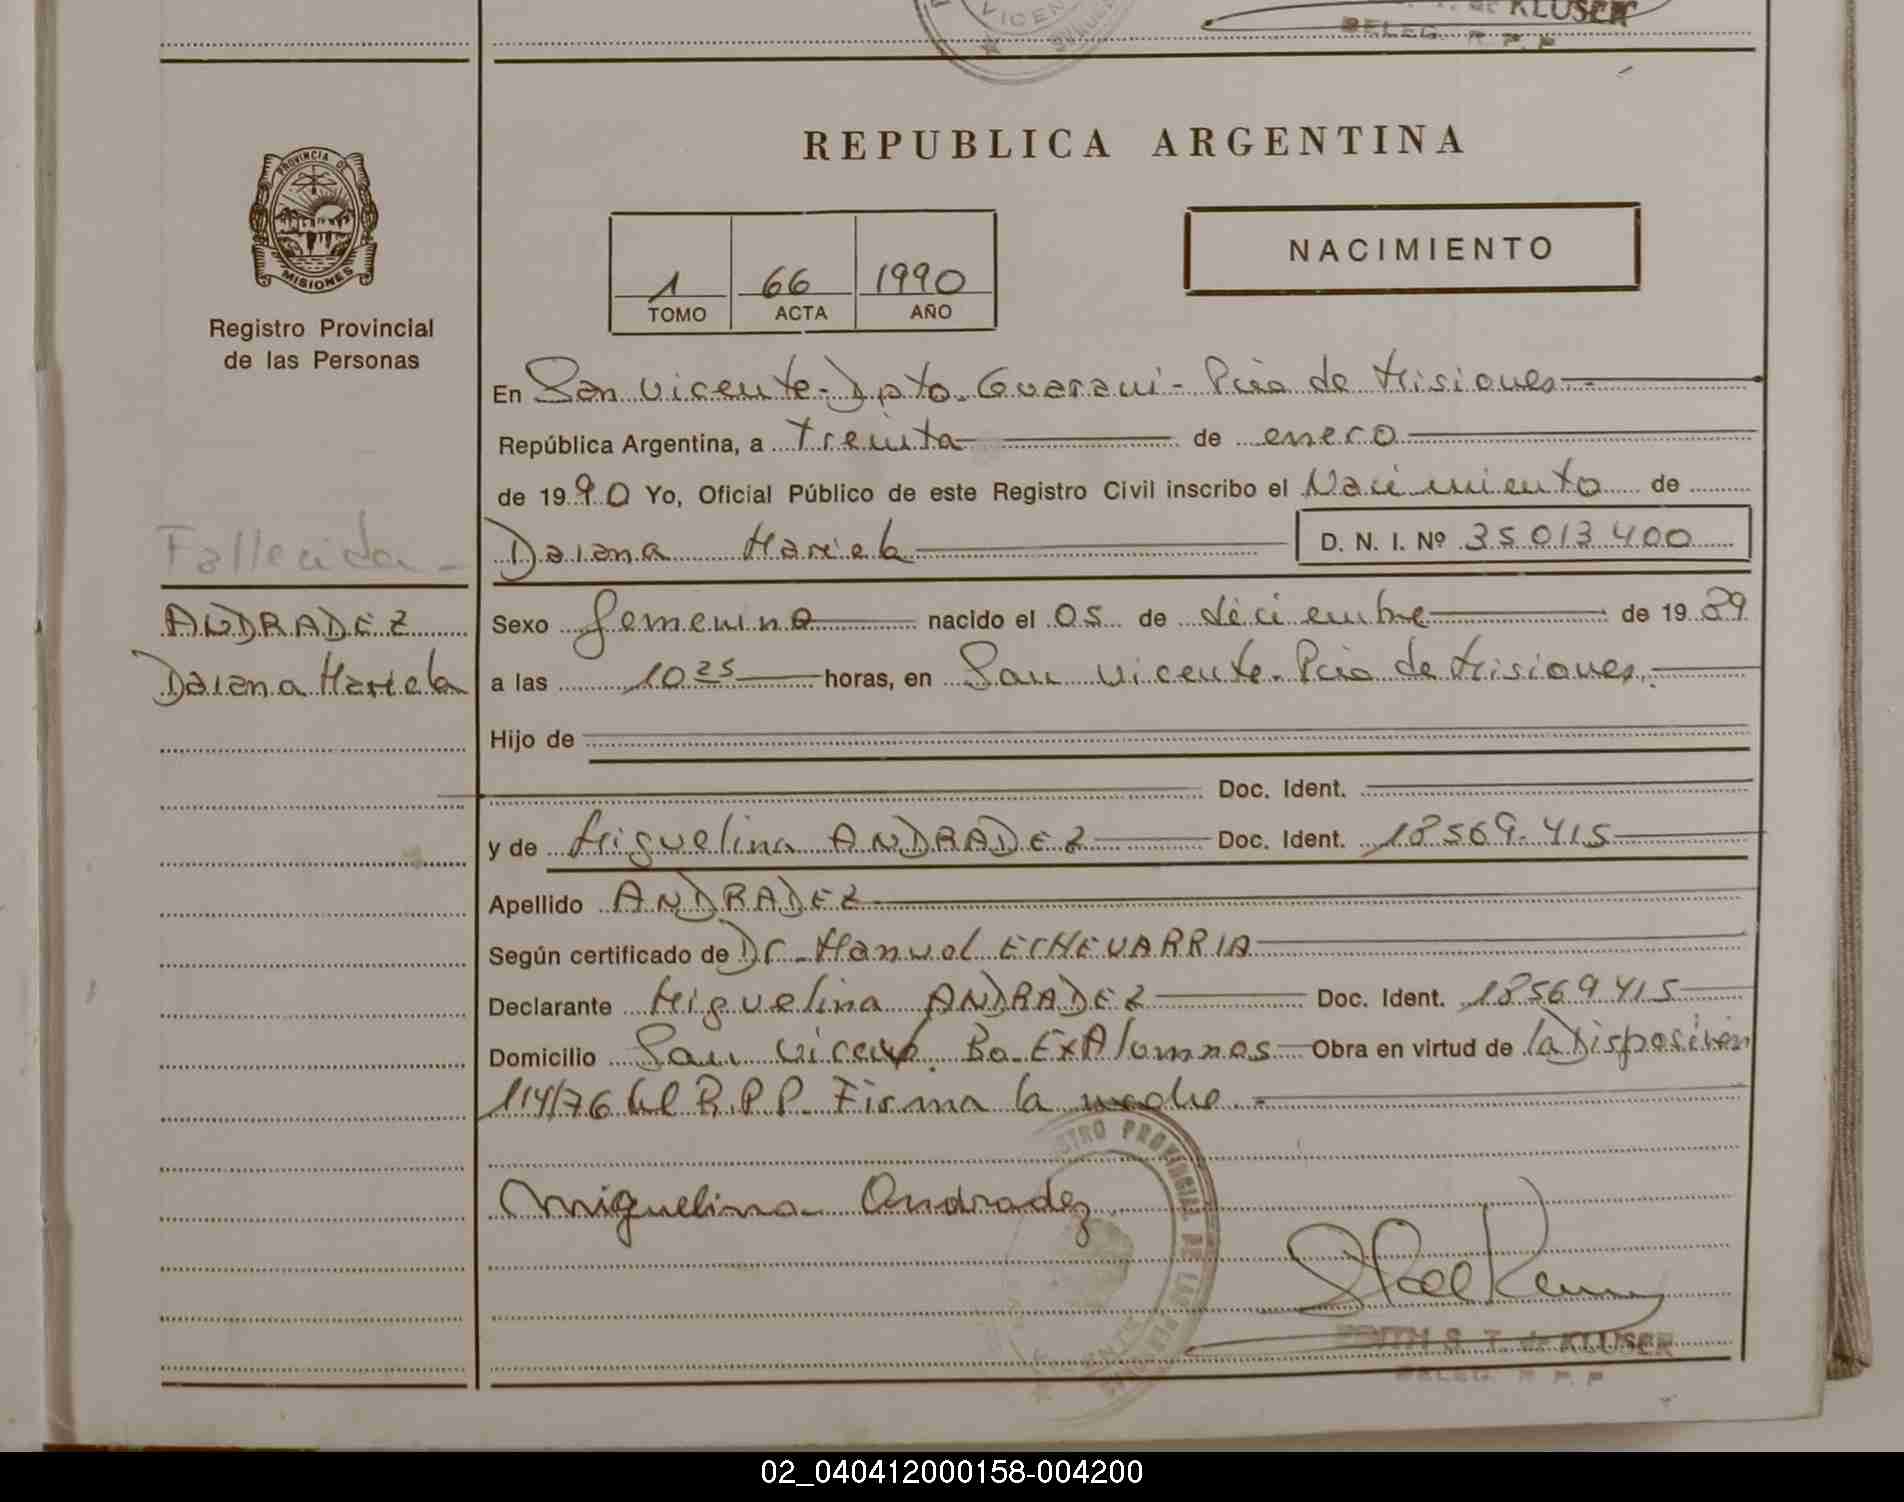 VICEN
de KLUSER
DELEG. R. P. P.
REPUBLICA ARGENTINA
PROVINCIA DE
MISIONES
Registro Provincial
de las Personas
1 66 1990
TOMO ACTA AÑO
NACIMIENTO
En San Vicente - Dpto. Guarani - Pcia de Misiones
República Argentina, a treinta de enero
de 1990 Yo, Oficial Público de este Registro Civil inscribo el Nacimiento de
Fallecida -
Daiana Mariela D. N. I. Nº 35013400
ANDRADEZ
Daiana Mariela
Sexo femenino nacido el 05 de diciembre de 1989
a las 10 25 horas, en San Vicente - Pcia de Misiones.
Hijo de
Doc. Ident.
y de Miguelina ANDRADEZ Doc. Ident. 18569.415
Apellido ANDRADEZ
Según certificado de Dr. Manuel ECHEVARRIA
Declarante Miguelina ANDRADEZ Doc. Ident. 18569415
Domicilio San Vicente. Bo. ExAlumnos Obra en virtud de la Disposición
114/76 del R.P.P. Firma la madre.-
STRO PROVINCIAL DE LAS PER
Miguelina Andradez
EDITH S. T. de KLUSER
DELEG. R. P. P.
02_040412000158-004200